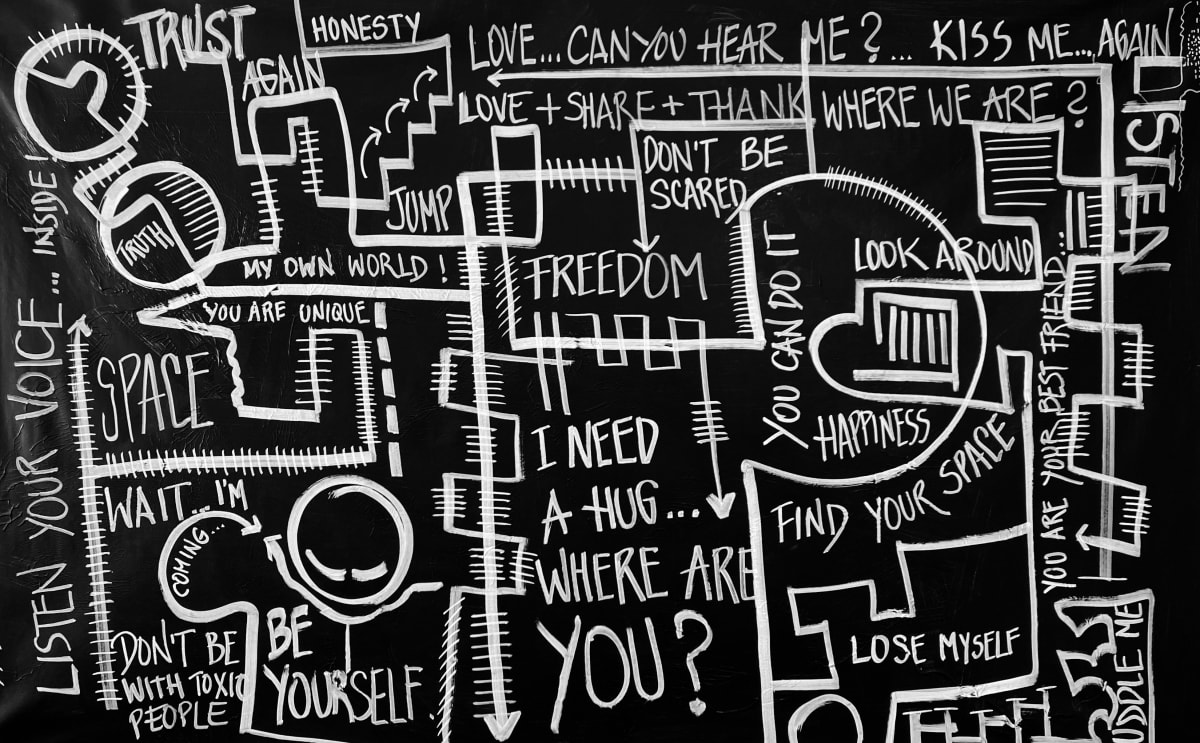 TRUST
HONESTY
AGAIN
LOVE...CAN YOU HEAR ME?... KISS ME...AGAIN
LOVE+SHARE+THANK WHERE WE ARE?
LISTEN
JUMP
DON'T BE
SCARED
TRUTH
MY OWN WORLD!
FREEDOM
YOU CAN DO IT
LOOK AROUND
YOU ARE UNIQUE
SPACE
LISTEN YOUR VOICE... INSIDE!
HAPPINESS
YOU ARE YOUR BEST FRIEND...
I NEED
A HUG...
WHERE ARE
YOU?
FIND YOUR SPACE
WAIT... I'M
COMING...
BE
YOURSELF.
DON'T BE
WITH TOXIC
PEOPLE
LOSE MYSELF